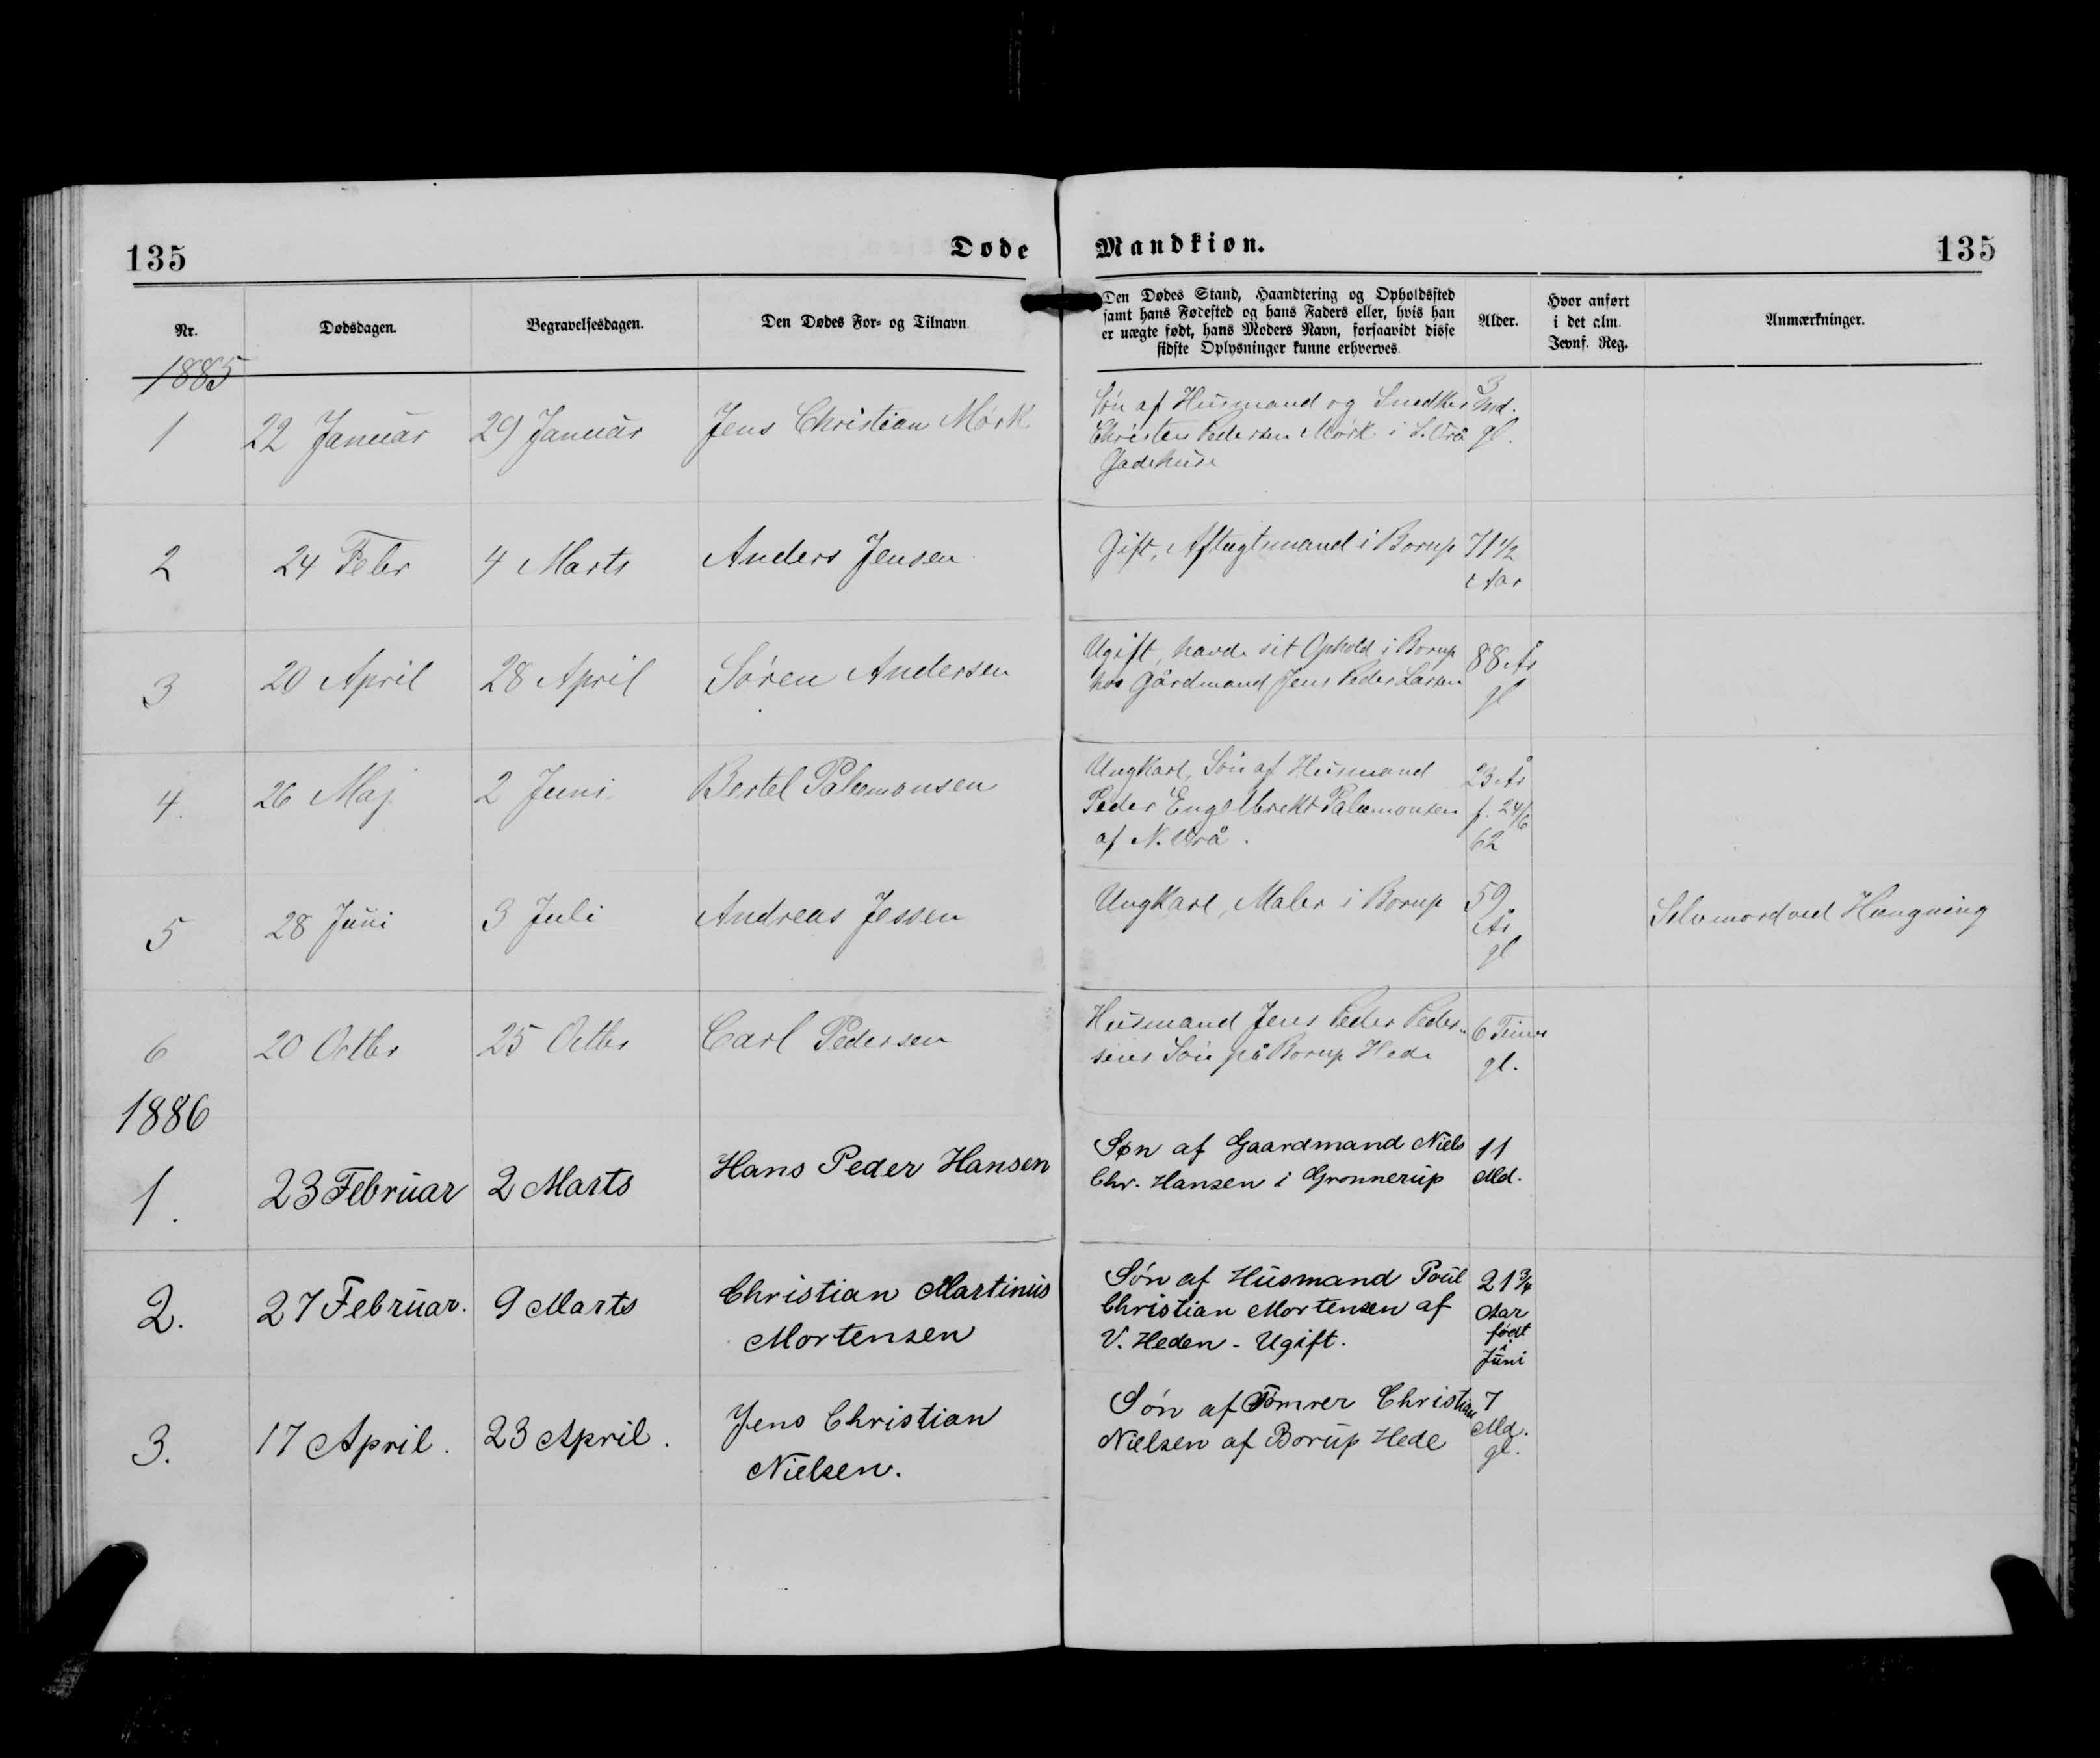 135
Døde
Mandkiøn.
135
Nr.
Dødsdagen.
Begravelsesdagen.
Den Dødes For- og Tilnavn
Den Dødes Stand, Haandtering og Opholdssted
samt hans Fødested og hans Faders eller, hvis han
er uægte født, hans Moders Navn, forsaavidt disse
sidste Oplysninger kunne erhverves.
Alder.
Hvor anført
i det alm.
Jevnf. Reg.
Anmærkninger.
1885
1
22 Januar
29 Januar
Jens Christian Mørk
Søn af Husmand og Snedker
Christen Pedersen Mørk i S. Vrå
Gadehuse
3
Md.
gl.
2
24 Febr
4 Marts
Anders Jensen
Gift, Aftægtsmand i Borup
71 1/2
Aar
3
20 April
28 April
Søren Andersen
Ugift, havde sit Ophold i Borup
hos Gårdmand Jens Peder Larsen
88 År
gl
4
26 Maj
2 Juni
Bertel Palæmonsen
Ungkarl, Søn af Husmand
Peder Engelbrekt Palæmonsen
af N. Vrå.
23 År
f. 24/6
62
5
28 Juni
3 Juli
Andreas Jessen
Ungkarl, Maler i Borup
59
År
gl
Selvmord ved Hængning
6
20 Octbr
25 Octbr
Carl Pedersen
Husmand Jens Peder Peder-
sens Søn på Borup Hede
6 Timer
gl.
1886
1.
23 Februar
2 Marts
Hans Peder Hansen
Søn af Gaardmand Niels
Chr. Hansen i Grønnerup
11
Md.
2.
27 Februar.
9 Marts
Christian Martinus
Mortensen
Søn af Husmand Poul
Christian Mortensen af
V. Heden - Ugift.
21 3/4
Aar
født
i
Juni
3.
17 April.
23 April.
Jens Christian
Nielsen.
Søn af Tømrer Christian
Nielsen af Borup Hede
7
Md.
gl.